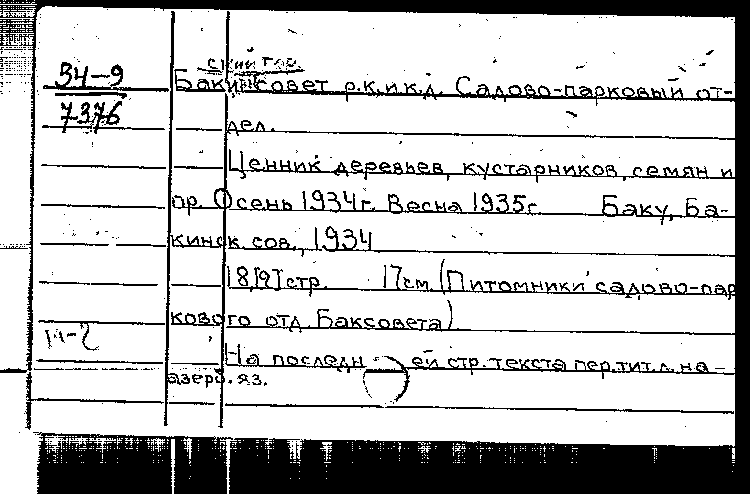 34-9
7376
ский гор.
Бакинсовет р.к.и к.д. Садово-парковый от-
дел.
Ценник деревьев, кустарников, семян и
пр. Осень 1934 г. Весна 1935 г. Баку, Ба-
кинск. сов., 1934
18,[9] стр. 17 см. (Питомники садово-пар
кового отд. Баксовета)
На последн ей стр. текста пер. тит. л. на-
азерб. яз.